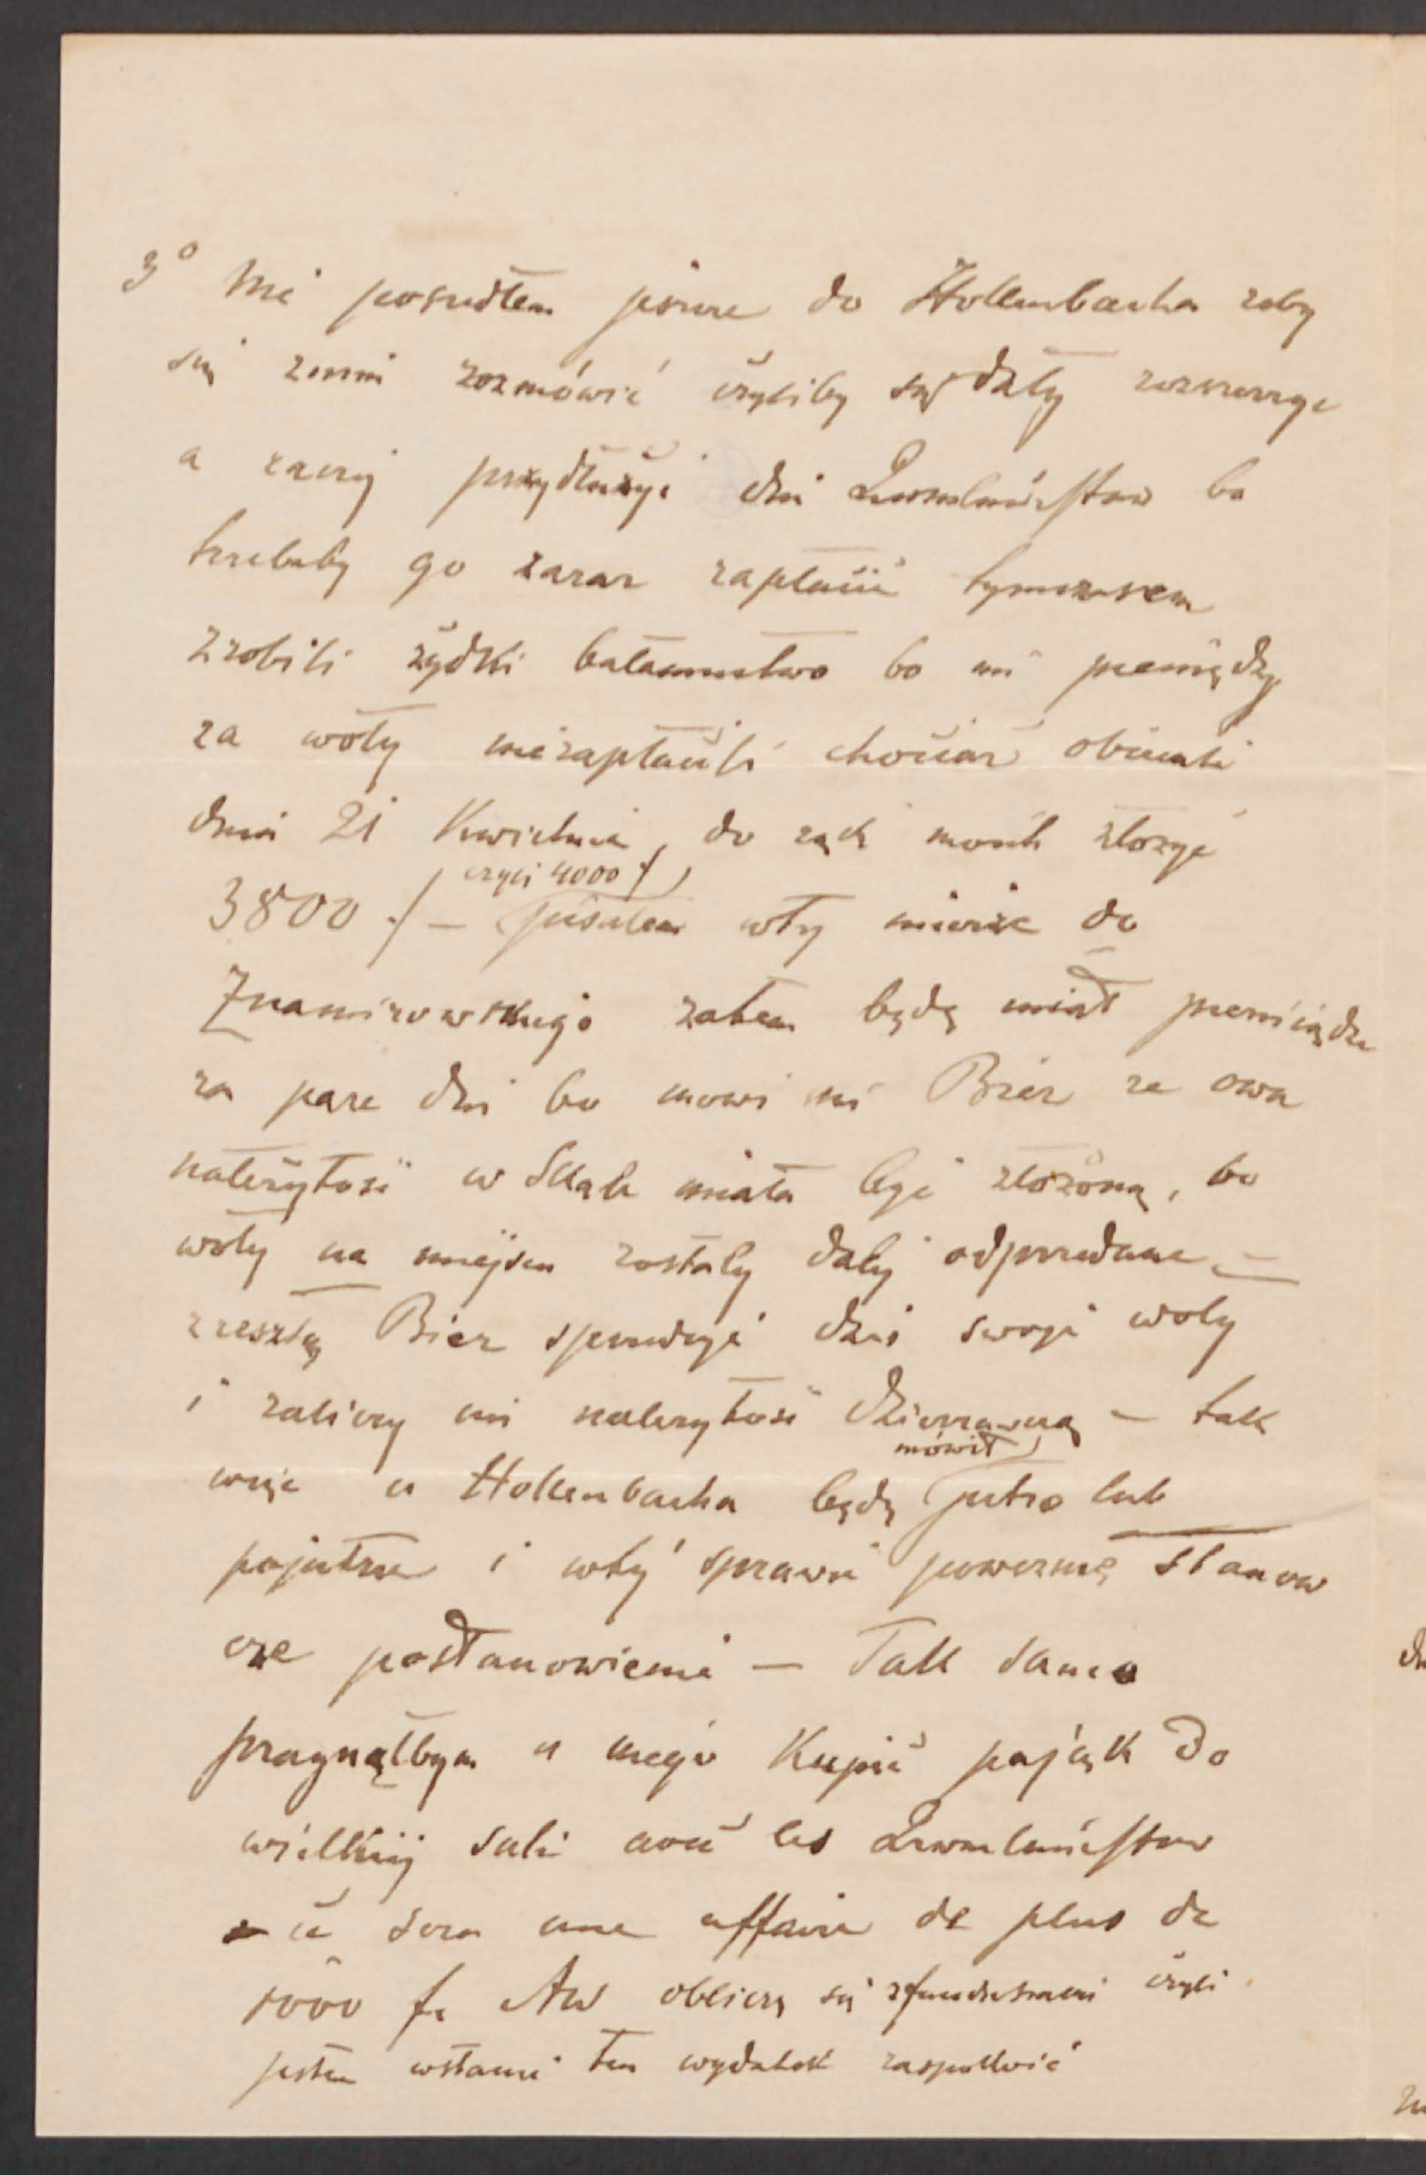 3° Nie poszedłem jeszcze do Hollenbacha zeby
się zemni rozmówić czyliby się dały
a raczy przydłużyć dni bo
trzebaby go zaraz zapłacić tymczasem
zrobili żydki bałamuctwo bo mi pieniędzy
za woły niezapłacili chociaż obiecali
dnia 21 Kwietnia, do rąk moich złożyć
czyli 4000 f
3800 f — pisałem wty mierze do
zatem będę miał pieniądze
za pare dni bo mowi mi Bier ze owa
należytość w miała być złożoną, bo
woły na miejscu zostały daly odprzedane —
zresztą Bier sprzedaje dziś swoje woly
i zaliczy mi należytość dzierzawną — tak
mówił
więc u Hollenbacha będę jutro lub
pojutrze i wtyj sprawie powezmę stanow
cze postanowienie — Tak samo
pragnąłbym u niego kupić pająk do
wielkiij sali avec les
ce sera une affaire de plus de
1000 fr AW obliczę się zfunduszami czyli
jestem wstanie ten wydatek zaspokoić